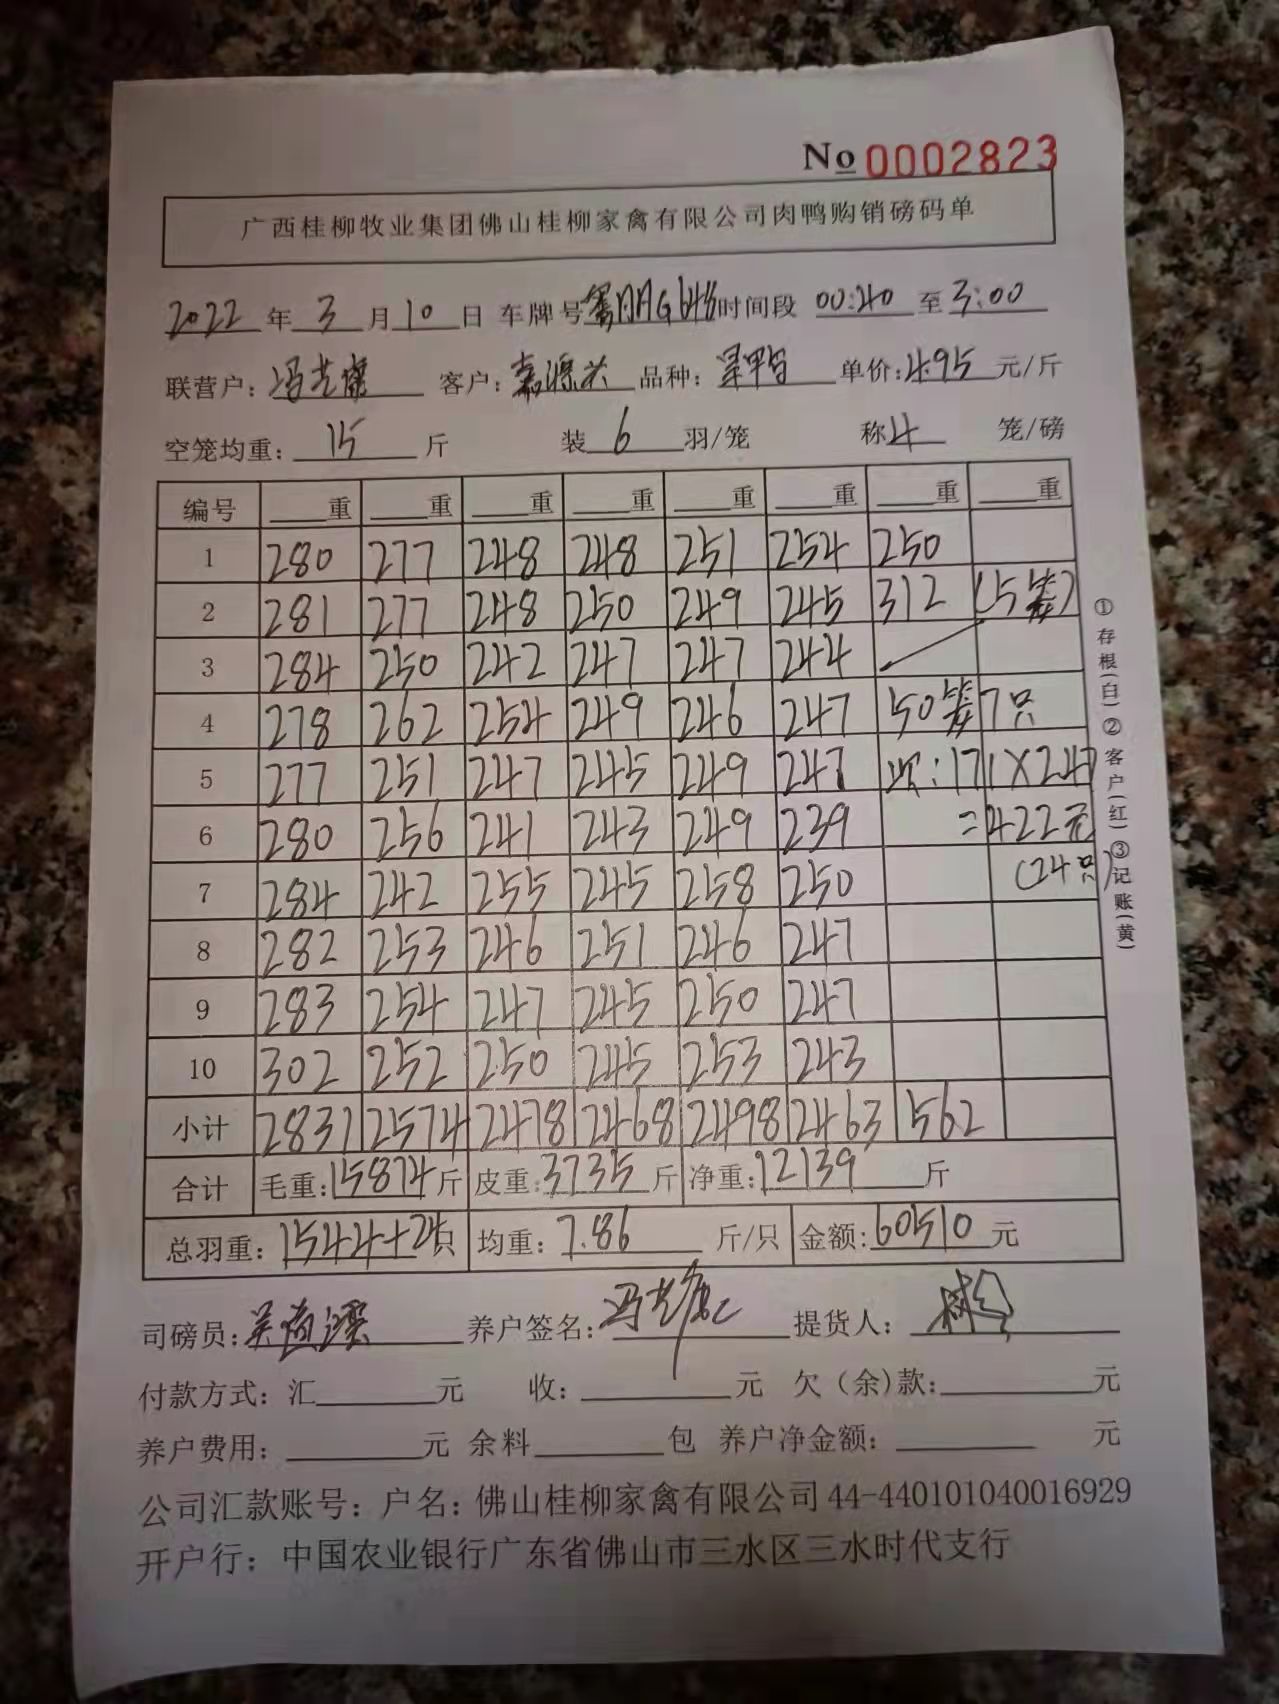 No 0002823
广西桂柳牧业集团佛山桂柳家禽有限公司肉鸭购销磅码单
2022 年 3 月 10 日 车牌号 时间段 00:40 至 3:00
联营户: 冯芝 客户: 嘉源兴 品种: 单价: 4.95 元/斤
空笼均重: 15 斤 装 6 羽/笼 称 4 笼/磅
编号 重 重 重 重 重 重 重 重
1 280 277 248 248 251 254 250
2 281 277 248 250 249 245 312 (5笼)
3 284 250 242 247 247 244
4 278 262 254 249 246 247 50笼7只
5 277 251 247 245 249 247 : 171X247
6 280 256 241 243 249 239 =422元
7 284 242 255 245 258 250 (24只)
8 282 253 246 251 246 247
9 283 254 247 245 250 247
10 302 252 250 245 253 243
小计 2831 2574 2478 2468 2498 2463 562
合计 毛重: 15874 斤 皮重: 3735 斤 净重: 12139 斤
总羽重: 1544+24只 均重: 7.86 斤/只 金额: 60510 元
司磅员: 养户签名: 冯芝 提货人:
付款方式: 汇 元 收: 元 欠(余)款: 元
养户费用: 元 余料 包 养户净金额: 元
公司汇款账号: 户名: 佛山桂柳家禽有限公司 44-440101040016929
开户行: 中国农业银行广东省佛山市三水区三水时代支行
①存根(白)②客户(红)③记账(黄)